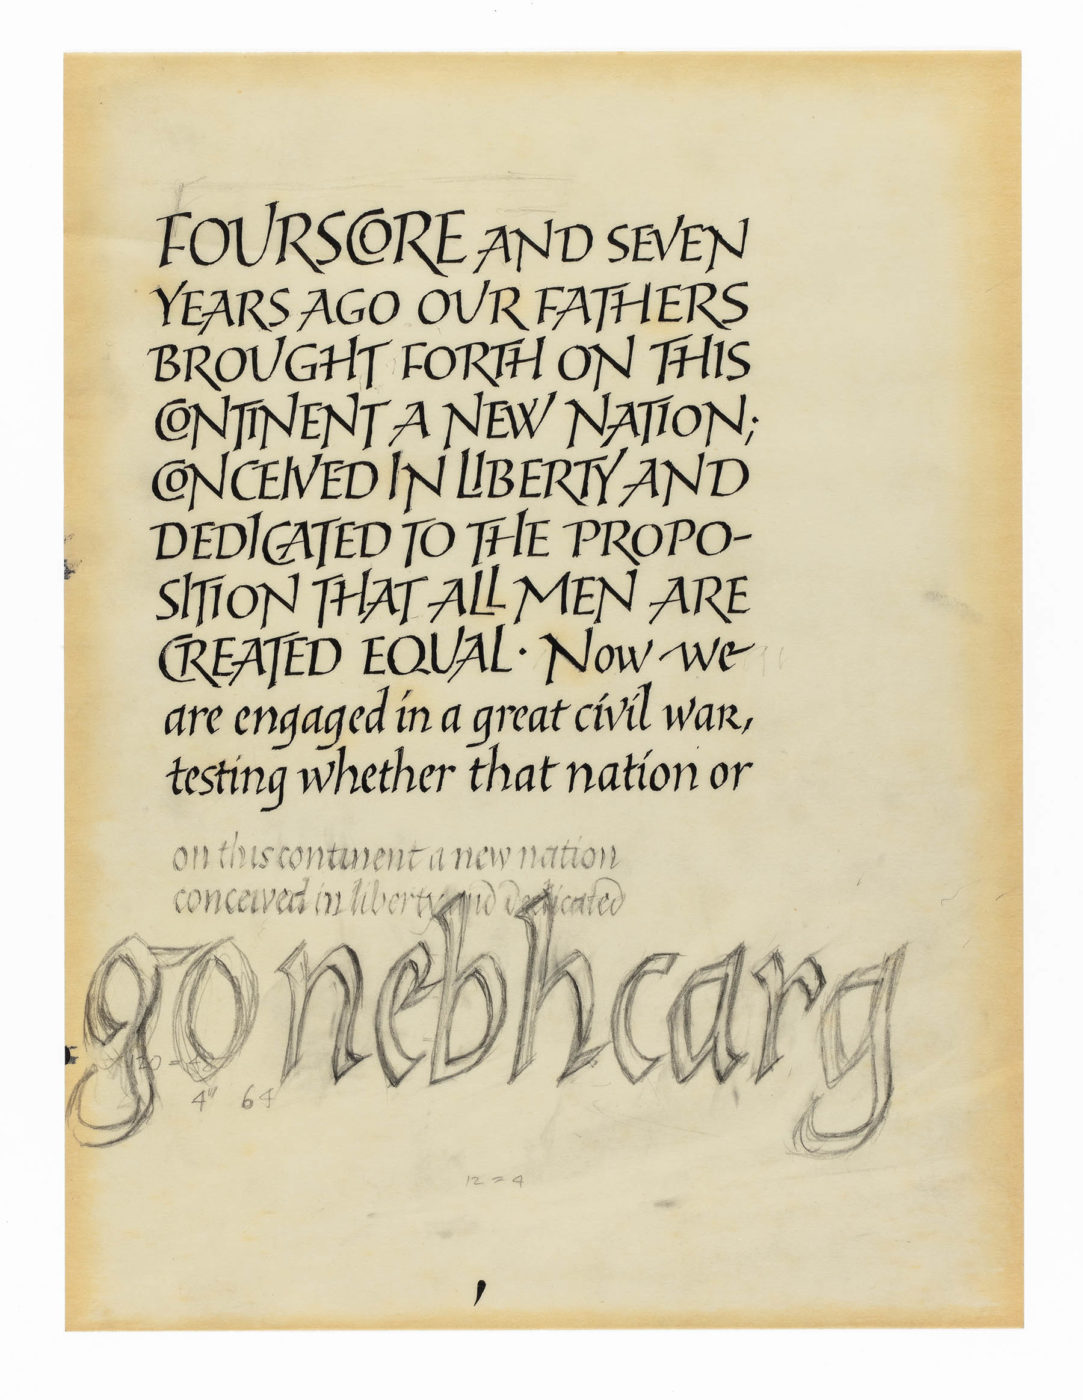 FOURSCORE AND SEVEN
YEARS AGO OUR FATHERS
BROUGHT FORTH ON THIS
CONTINENT A NEW NATION;
CONCEIVED IN LIBERTY AND
DEDICATED TO THE PROPO-
SITION THAT ALL MEN ARE
CREATED EQUAL· Now we
are engaged in a great civil war,
testing whether that nation or
on this continent a new nation
conceived in liberty and dedicated
gonebhcarg
4" 64
12 = 4
,